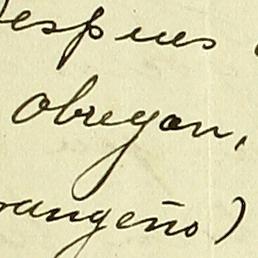 espues
Obregon,
rangeño)